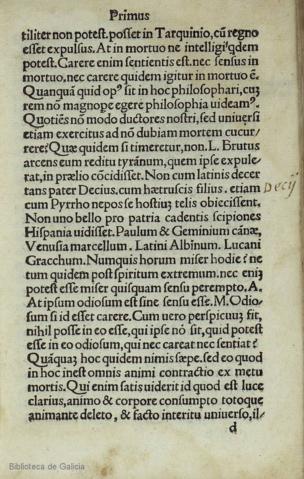 Primus
tiliter non potest. posset in Tarquinio, cũ regno
esset expulsus. At in mortuo ne intelligi q̇dem
potest. Carere enim sentientis est. nec sensus in
mortuo, nec carere quidem igitur in mortuo ẽ.
Quanquã quid opꝰ sit in hoc philosophari, cuꝫ
rem nõ magnope egere philosophia videamꝰ.
Quotiẽs nõ modo ductores nostri, sed uniuersi
etiam exercitus ad nõ dubiam mortem cucur/
rere? Quæ quidem si timeretur, non. L. Brutus
arcens eum reditu tyrãnum, quem ipse expule/
rat, in prælio cõcidisset. Non cum latinis decer
tans pater Decius. cum hætruscis filius. etiam
Decij
cum Pyrrho nepos se hostiuꝫ telis obiecissent.
Non uno bello pro patria cadentis scipiones
Hispania uidisset. Paulum & Geminium cãnæ,
Venusia marcellum. Latini Albinum. Lucani
Gracchum. Numquis horum miser hodie? ne
tum quidem post spiritum extremum. nec eniꝫ
potest esse miser quisquam sensu perempto. A.
At ipsum odiosum est sine sensu esse. M. Odio/
sum si id esset carere. Cum uero perspicuuꝫ sit,
nihil posse in eo esse, qui ipse nõ sit, quid potest
esse in eo odiosum, qui nec careat nec sentiat?
Quãquaꝫ hoc quidem nimis sæpe. sed eo quod
in hoc inest omnis animi contractio ex metu
mortis. Qui enim satis uiderit id quod est luce
clarius, animo & corpore consumpto totoque
animante deleto, & facto interitu uniuerso, il/
d
Biblioteca de Galicia